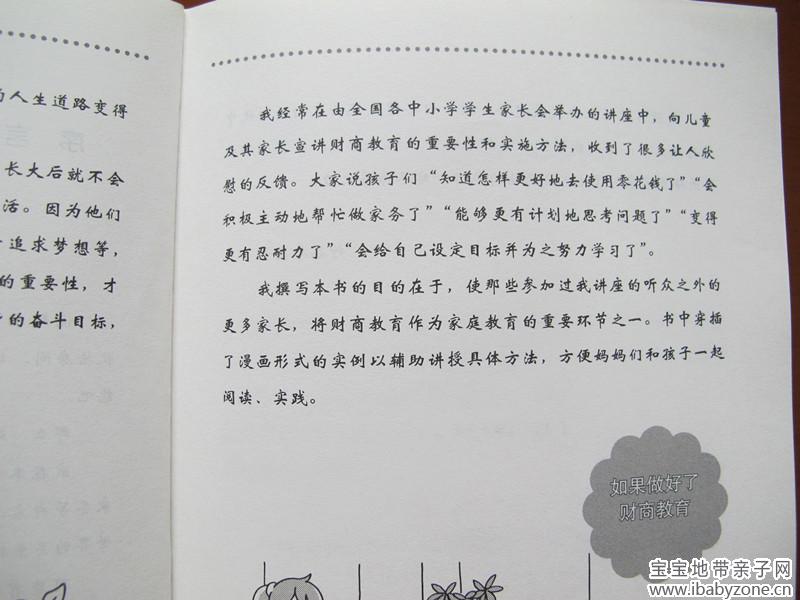 的人生道路变得
序言
长大后就不会
活。因为他们
追求梦想等，
的重要性，才
的奋斗目标，
我经常在由全国各中小学学生家长会举办的讲座中，向儿童
及其家长宣讲财商教育的重要性和实施方法，收到了很多让人欣
慰的反馈。大家说孩子们“知道怎样更好地去使用零花钱了”“会
积极主动地帮忙做家务了”“能够更有计划地思考问题了”“变得
更有忍耐力了”“会给自己设定目标并为之努力学习了”。
我撰写本书的目的在于，使那些参加过我讲座的听众之外的
更多家长，将财商教育作为家庭教育的重要环节之一。书中穿插
了漫画形式的实例以辅助讲授具体方法，方便妈妈们和孩子一起
阅读、实践。
如果做好了
财商教育
宝宝地带亲子网
www.ibabyzone.cn